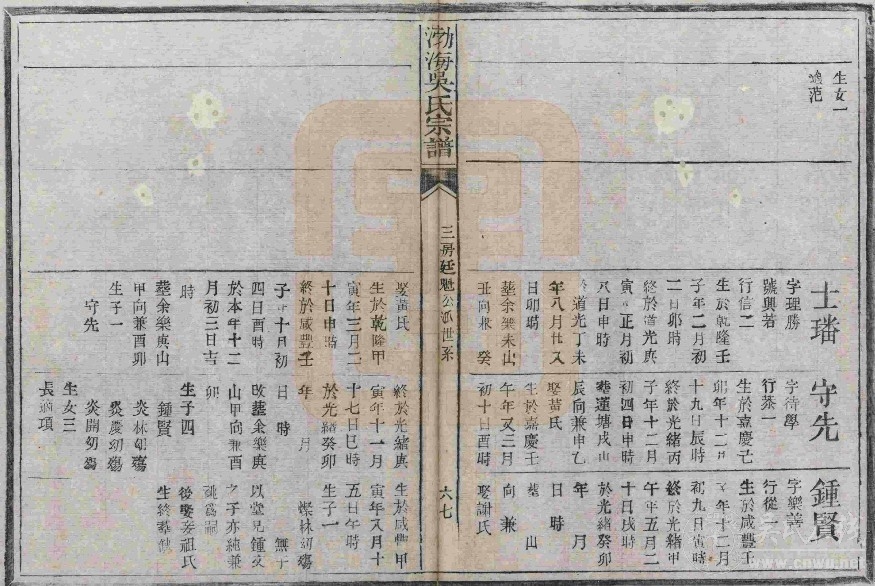 渤海吳氏宗譜
三房廷魁公派世系
六七
生女一
適范
士璠
字理勝
號興若
行信二
生於乾隆壬
子年二月初
二日卯時
終於道光庚
寅年正月初
八日申時
於道光丁未
年八月廿又
日卯時
葬余樂未山
丑向兼癸
娶黃氏
生於乾隆甲
寅年三月二
十日申時
終於咸豐壬
子年十月初
四日酉時
於本年十二
月初三日吉
時
葬余樂庚山
甲向兼酉卯
生子一
守先
守先
字待學
行恭一
生於嘉慶己
卯年十二月
十九日辰時
終於光緒丙
子年十二月
初四日申時
葬蓮塘戌山
辰向兼申乙
娶黃氏
生於嘉慶壬
午年又三月
初十日酉時
終於光緒庚
寅年十一月
十七日巳時
於光緒癸卯
年 月
日 時
改葬余樂庚
山甲向兼酉
卯
生子四
鍾賢
炎林幼殤
炎慶幼殤
炎開幼殤
生女三
長適項
鍾賢
字樂善
行從一
生於咸豐壬
子年十二月
初九日寅時
終於光緒甲
午年五月二
十日戌時
於光緒癸卯
年 月
日 時
葬 山
向 兼
娶謝氏
生於咸豐甲
寅年八月十
五日午時
生子一
燦林幼殤
無子
以堂兄鍾文
之子亦純兼
祧為嗣
後娶 祖氏
生終葬缺
www.cnwu.net